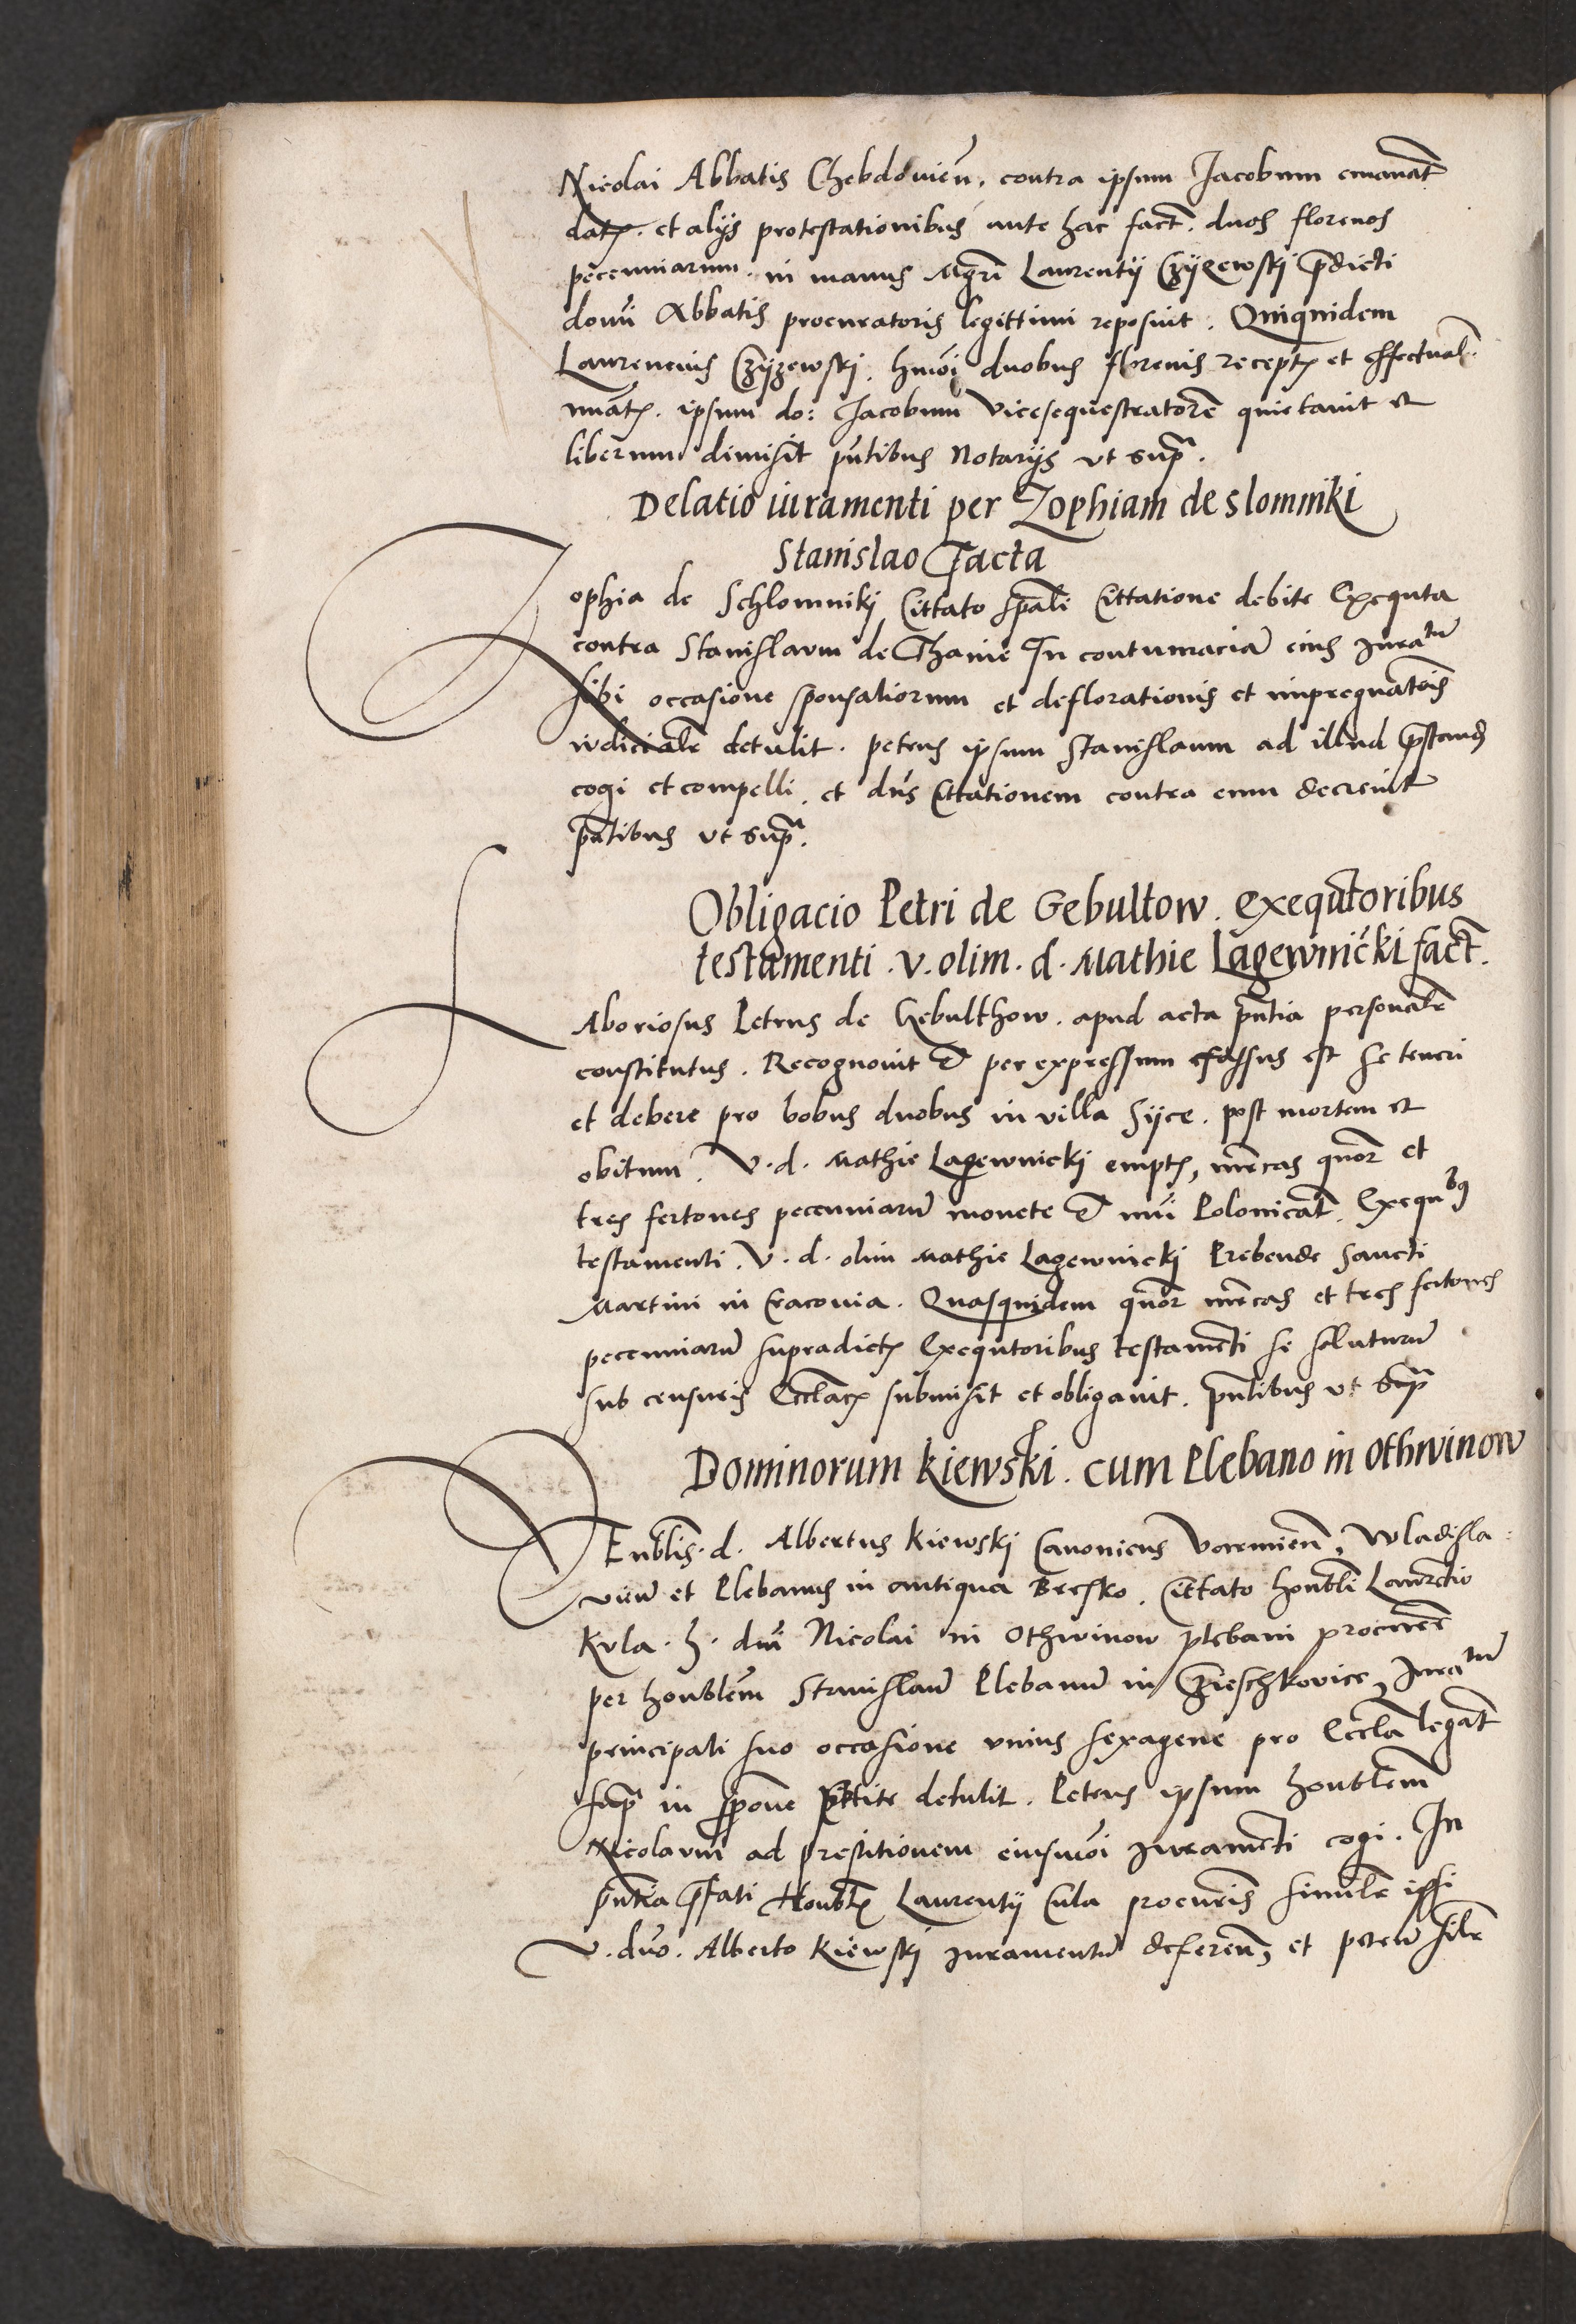 Nicolai Abbatis Chebdovień. contra ipsum Jacobum emanat̃
dat. et alijs protestationibus ante hac fact̃. duos florenos
pecunniarum. in manus mgr̃i Laurentij Czyzewskj p̃dicti
domĩ Abbatis procuratoris legittimi reposuit. Quiquidem
Laurencius Czyzewskj. hmõi duobus florenis recept. et effectual.
nũat. ipsum do: Jacobum vicesequestratorẽ quietavit et
liberum dimisit pñtibus Notarijs vt sup̃.
Delatio iuramenti per Zophiam de Slomniki
Stanislao Facta
Zophia de Schlomnikj Cittato sp̃ali Cittatione debite Exequta
contra Stanislaum de Thanie In contumaciã eius Jura^tũ
sibi occasione sponsaliorum et deflorationis et impregnat̃õis
iudicialr̃ detulit. petens ipsum Stanislaum ad illud p̃stand
cogi et compelli. et dñs Cittationem contra eum decrevit
pñtibus vt sup̃.
Obligacio Petri de Gebultow. exequtoribus
testamenti. v. olim. d. Mathie Lagewnicki fact̃.
Laboriosus Petrus de Gebulthow. apud acta pñtia personalr̃
constitutus. Recognovit & per expressum fassus est se teneri
et debere pro bobus duobus in villa Syce. post mortem et
obitum. V. d. Mathie Lagewnickj empt, mr̃cas quor̃ et
tres fertones pecunniarũ monete & nũi Polonicat̃. Exequ^bq
testamenti. V. d. olim Mathie Lagewnickj Prebende Sancti
Martini in Cracovia. Quasquidem quor̃ mr̃cas et tres fertones
pecunniarũ supradict Exequtoribus testamẽti se soluturũ
sub censuris Eccl̃ac submisit et obligavit. pñtibus vt sup̃
Dominorum Kiewski. cum Plebano in Othwinow
VEnblis. d. Albertus Kiewskj Canonicus Varmień, Wladisla-
vień et Plebanus in antiqua Bresko. Cittato honbl̃i Laurẽtio
Kvla. h. dnĩ Nicolai in Othwinow plebani procur̃e
per honblẽm Stanislaũ Plebanũ in Czieschkovice, Jura^tũ
principali suo occasione vnius sexagene pro Eccl̃a legat̃
sup̃ in p̃pone detulit. Petens ipsum honblẽm
Nicolaum ad prestitionem eiusmõi Juramẽti cogi. In
pñtia p̃fati Honbl Laurentij Cula procur̃is similr̃ ipsi
V. dño. Alberto Kiewskj Juramentũ deferen, et peteñ silr̃